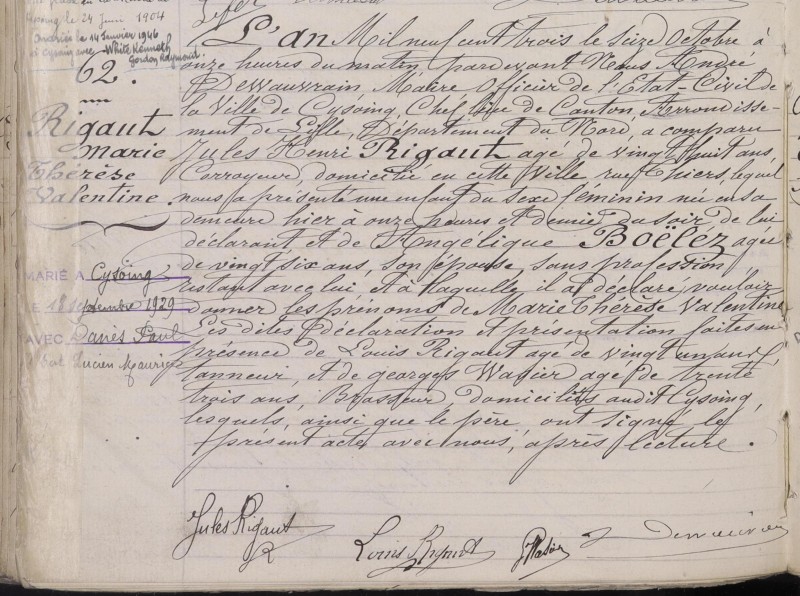 le 24 Juin 1904
le 14 Janvier 1946
à Cysoing avec White Kenneth
Gordon Raymond.
62.
Rigaut
Marie
Thérèse
Valentine
MARIÉ A Cysoing
LE 18 Septembre 1929
AVEC Danès Paul
Lucien Maurice
L'an Mil neuf cent trois le seize Octobre à
onze heures du matin pardevant Nous André
Dewauvrain, Maire Officier de l'Etat-Civil de
la Ville de Cysoing, Chef lieu de Canton, Arrondisse-
ment de Lille, Département du Nord, a comparu
Jules Henri Rigaut agé de vingt huit ans,
Corroyeur, domicilié en cette Ville rue Thiers, lequel
nous a présenté une enfant du sexe féminin née en sa
demeure hier à onze heures et demie du soir de lui
déclarant et de Angélique Boëlez agée
de vingt six ans, son épouse, sans profession,
restant avec lui et à laquelle il a déclaré vouloir
donner les prénoms de Marie Thérèse Valentine
Les dites déclaration et présentation faites en
présence de Louis Rigaut agé de vingt un ans,
tanneur, et de georges Wagier agé de trente
trois ans, Brasseur, Domiciliés audit Cysoing,
lesquels, ainsi que le père, ont signé le
présent acte avec nous, après lecture.
Jules Rigaut
Louis Rigaut